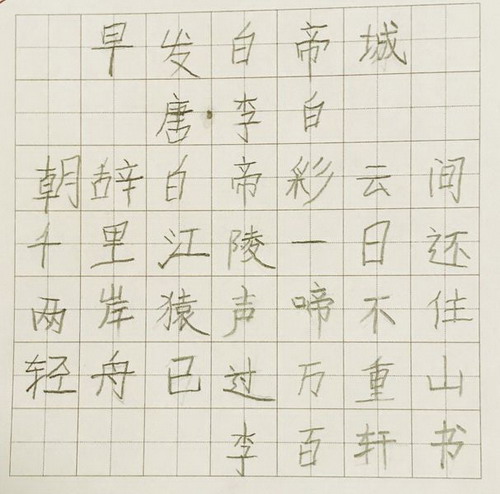 早发白帝城
唐·李白
朝辞白帝彩云间
千里江陵一日还
两岸猿声啼不住
轻舟已过万重山
李百轩书